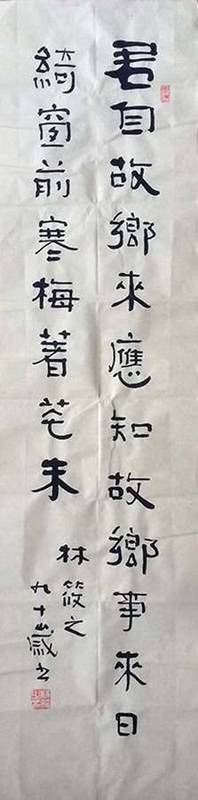 君自故鄉來應知故鄉事來日
綺窗前寒梅著花未
林筱之
九十歲書